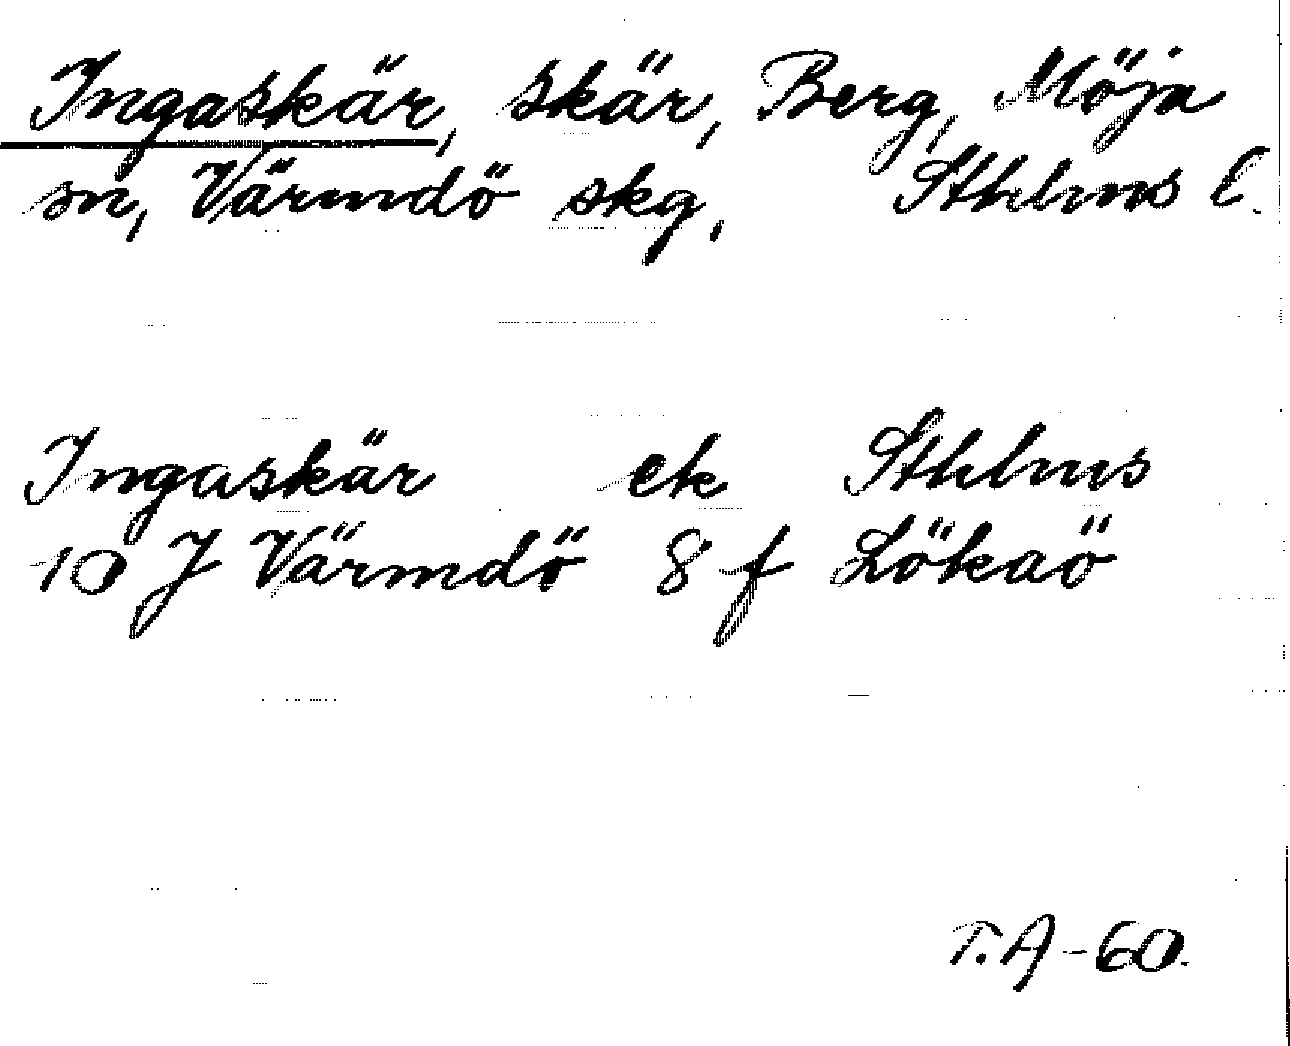 Ingaskär, skär, Berg, Möja
sn, Värmdö skg, Sthlms l.
Ingaskär ek Sthlms
10 J Värmdö 8 f Lökaö
T.A-60.